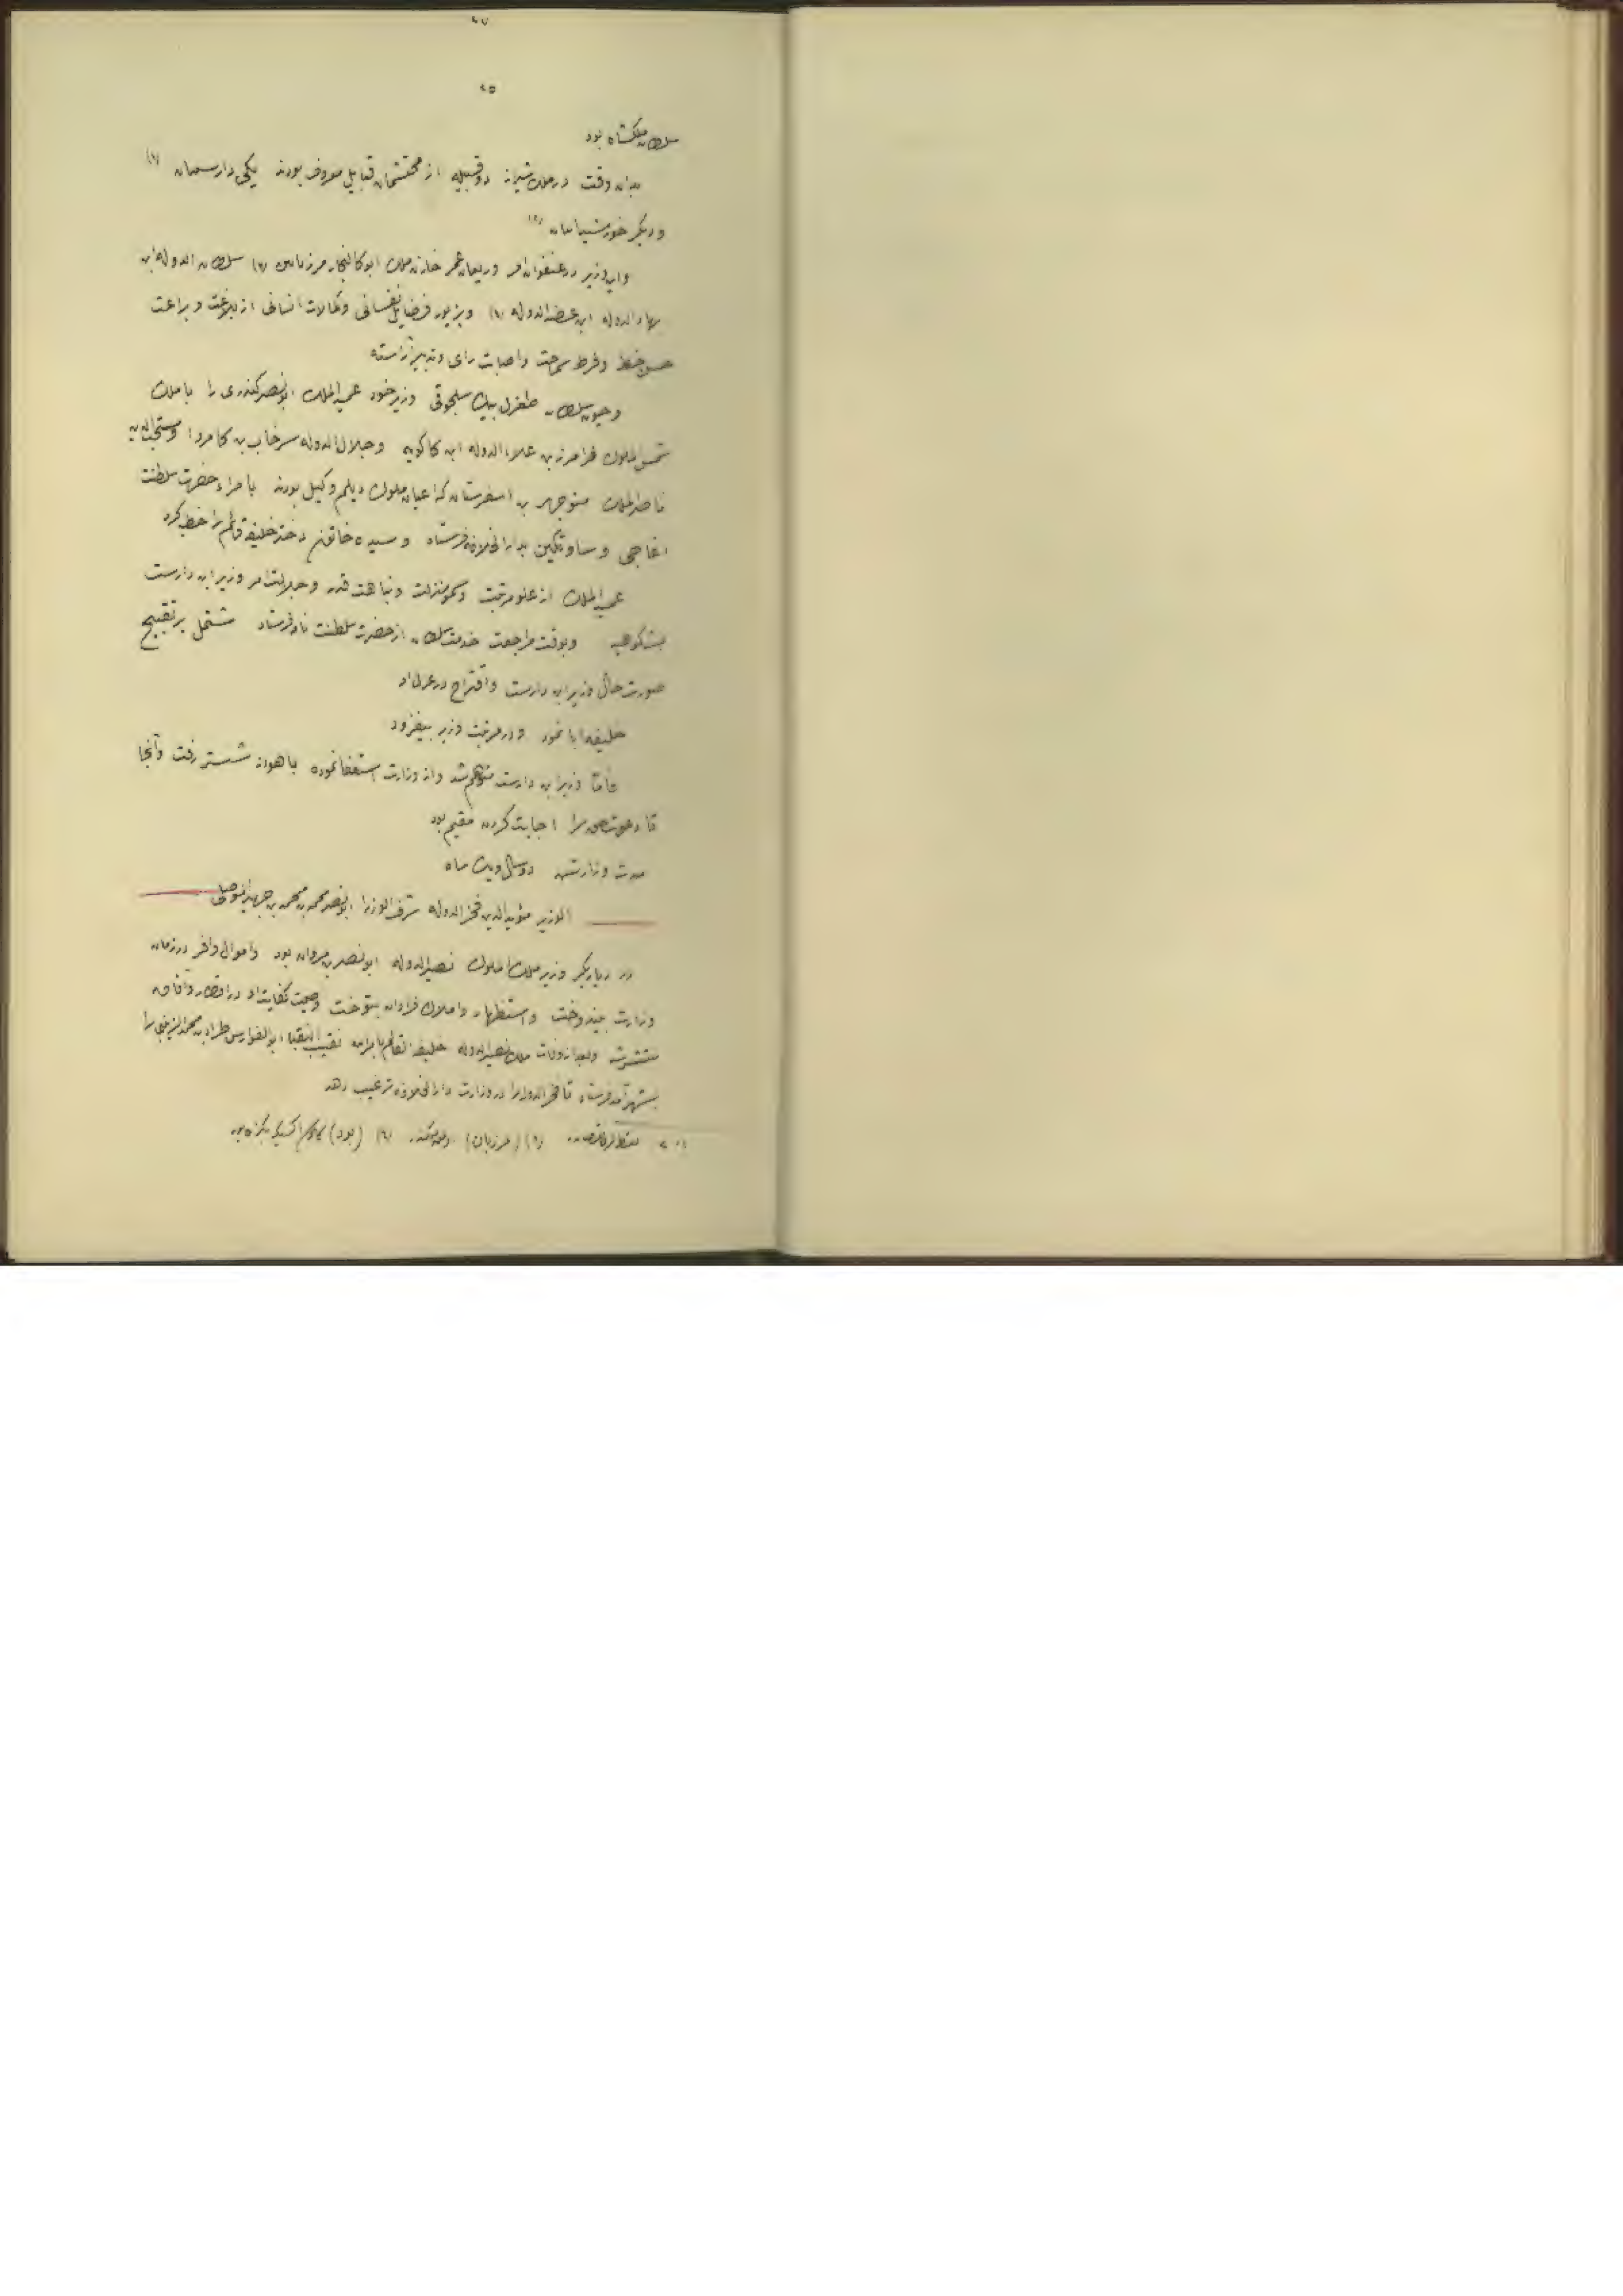 ۴۷
۴۵
سلطان ملکشاه بود
بدان وقت در ملک شیراز دو قبیله از محتشمان قبایل معروف بودند یکی دارستیان (۱)
و دیگر خورشیدیان
و این وزیر در عنفوان امر و ریعان عمر خازن ملک ابوکالنجار مرزبان بن (۲) سلطان الدوله ابن
بهاء الدوله ابن عضد الدوله و بزیور فضایل نفسانی و کمالات انسانی از بلاغت و براعت
حسن خط و فرط سماحت و اصابت رای و تدبیر آراسته
و چون سلطان طغرل بیک سلجوقی وزیر خود عمید الملک ابونصر کندری را با ملک
شمس الملوک فرامرز بن علاء الدوله ابن کاکویه و جلال الدوله سرخاب بن کامروا و
ناصر الملک منوچهر بن اسفرستان که اعیان ملوک دیلم و کیل بودند با امراء حضرت سلطنت
اغاجی و ساوتکین بدار الخلافه فرستاد و سیده خاتون دختر خلیفه قائم را خطبه کرد
عمید الملک از علو مرتبت و سمو منزلت و نباهت قدر و جلالت امر وزیر ابن دارست
بشکوهید و بوقت مراجعت خدمت سلطان از حضرت سلطنت نامه فرستاد مشتمل بر تقبیح
صورت حال وزیر ابن دارست و اقتراح در عزل او
خلیفه ابا نمود و در مرتبت وزیر بیفزود
فاما وزیر ابن دارست متوهم شد و از وزارت استعفا نموده باهواز شستر رفت و آنجا
تا دعوت حق را اجابت کردن مقیم بود
مدت وزارتش دو سال و یک ماه
الوزیر مؤید الدین فخر الدوله شرف الوزرا ابونصر محمد بن محمد بن جهیر الموصلی
در دیاربکر وزیر ملک الملوک نصیر الدوله ابونصر بن مروان بود و اموال وافر در زمان
وزارت بیندوخت و استظهار و املاک فراوان بتوخت و صیت کفایت او در اقطار و آفاق
منتشر شد و بعد از وفات ملک نصیر الدوله خلیفه القائم بامر الله نقیب النقبا ابوالفوارس طراد بن محمد الزینبی را
بشهر آمد فرستاد تا فخر الدوله را در وزارت دار الخلافه ترغیب دهد
(مرزبان) (بود)